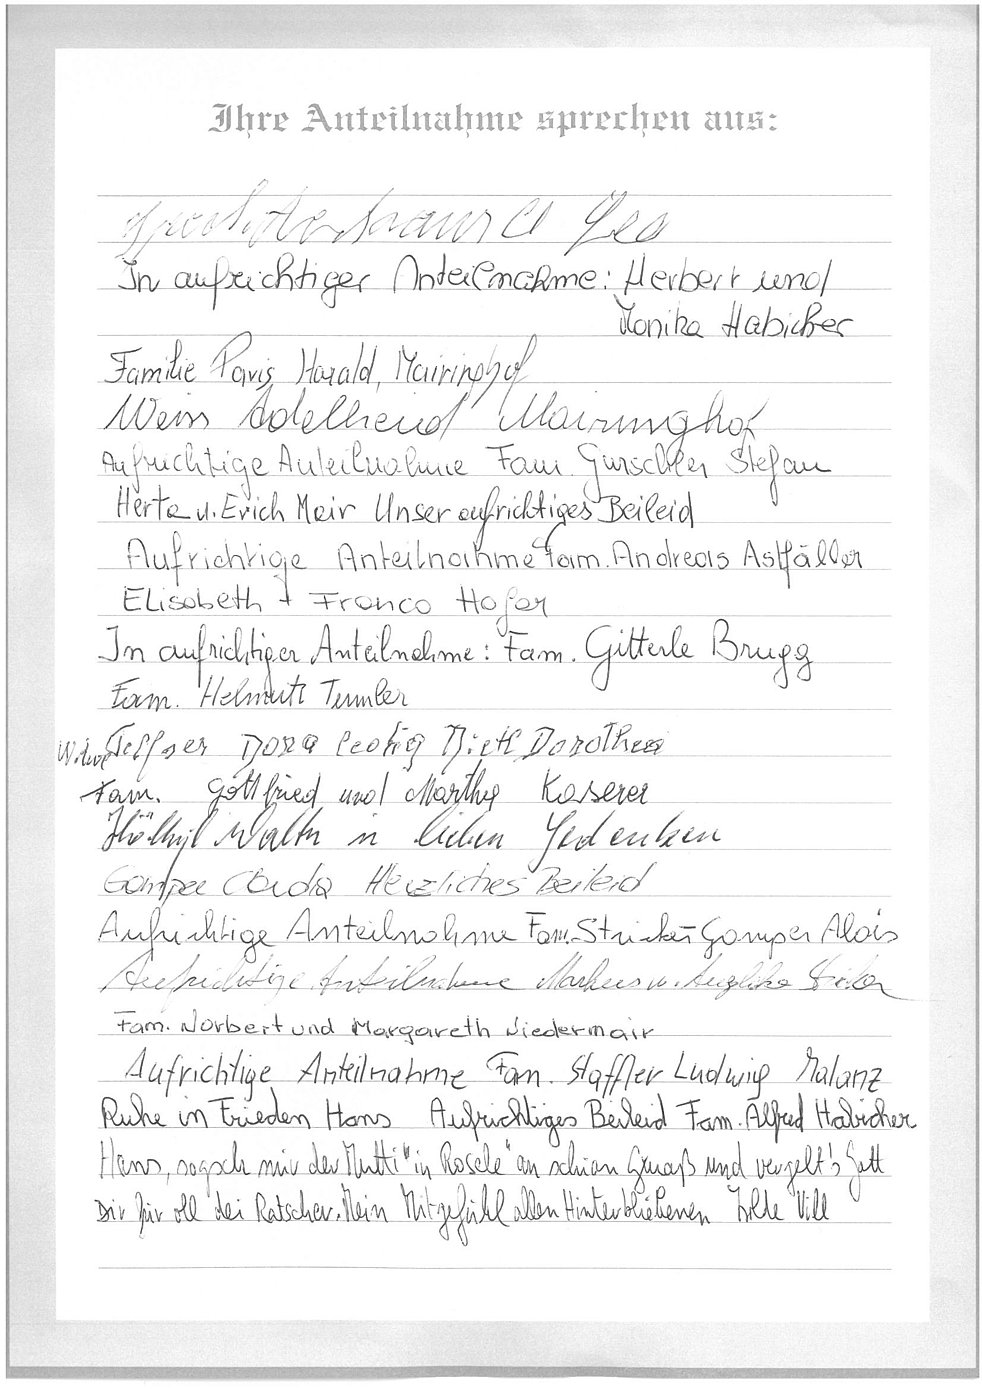 Ihre Anteilnahme sprechen aus:
Leo
In aufrichtiger Anteilnahme: Herbert und
Monika Habicher
Familie Pavis Harald, Mairinghof
Weiss Adelheid Mairunghof
Aufrichtige Anteilnahme Fam. Gurschler Stefan
Herta u. Erich Mair Unser aufrichtiges Beileid
Aufrichtige Anteilnahme Fam. Andreas Astfäller
Elisabeth + Franco Hofer
In aufrichtiger Anteilnahme: Fam. Gitterle Brugg
Fam. Helmuth
Dora Dietl Dorothea
Fam. Gottfried und Martha Kaserer
in lieben Gedenken
Gamper Claudia Herzliches Beileid
Aufrichtige Anteilnahme Fam. Stricker Gamper Alois
Aufrichtige Anteilnahme Markus u.
Fam. Norbert und Margareth Niedermair
Aufrichtige Anteilnahme Fam. Staffler Ludwig Malanz
Ruhe in Frieden Hans Aufrichtiges Beileid Fam. Alfred Habicher
Hans, sogsch mir der Mutti "in Rosele" an schian Gruaß und vergelt's Gott
Dir für oll dei Ratscher. Mein Mitgefühl allen Hinterbliebenen Vill